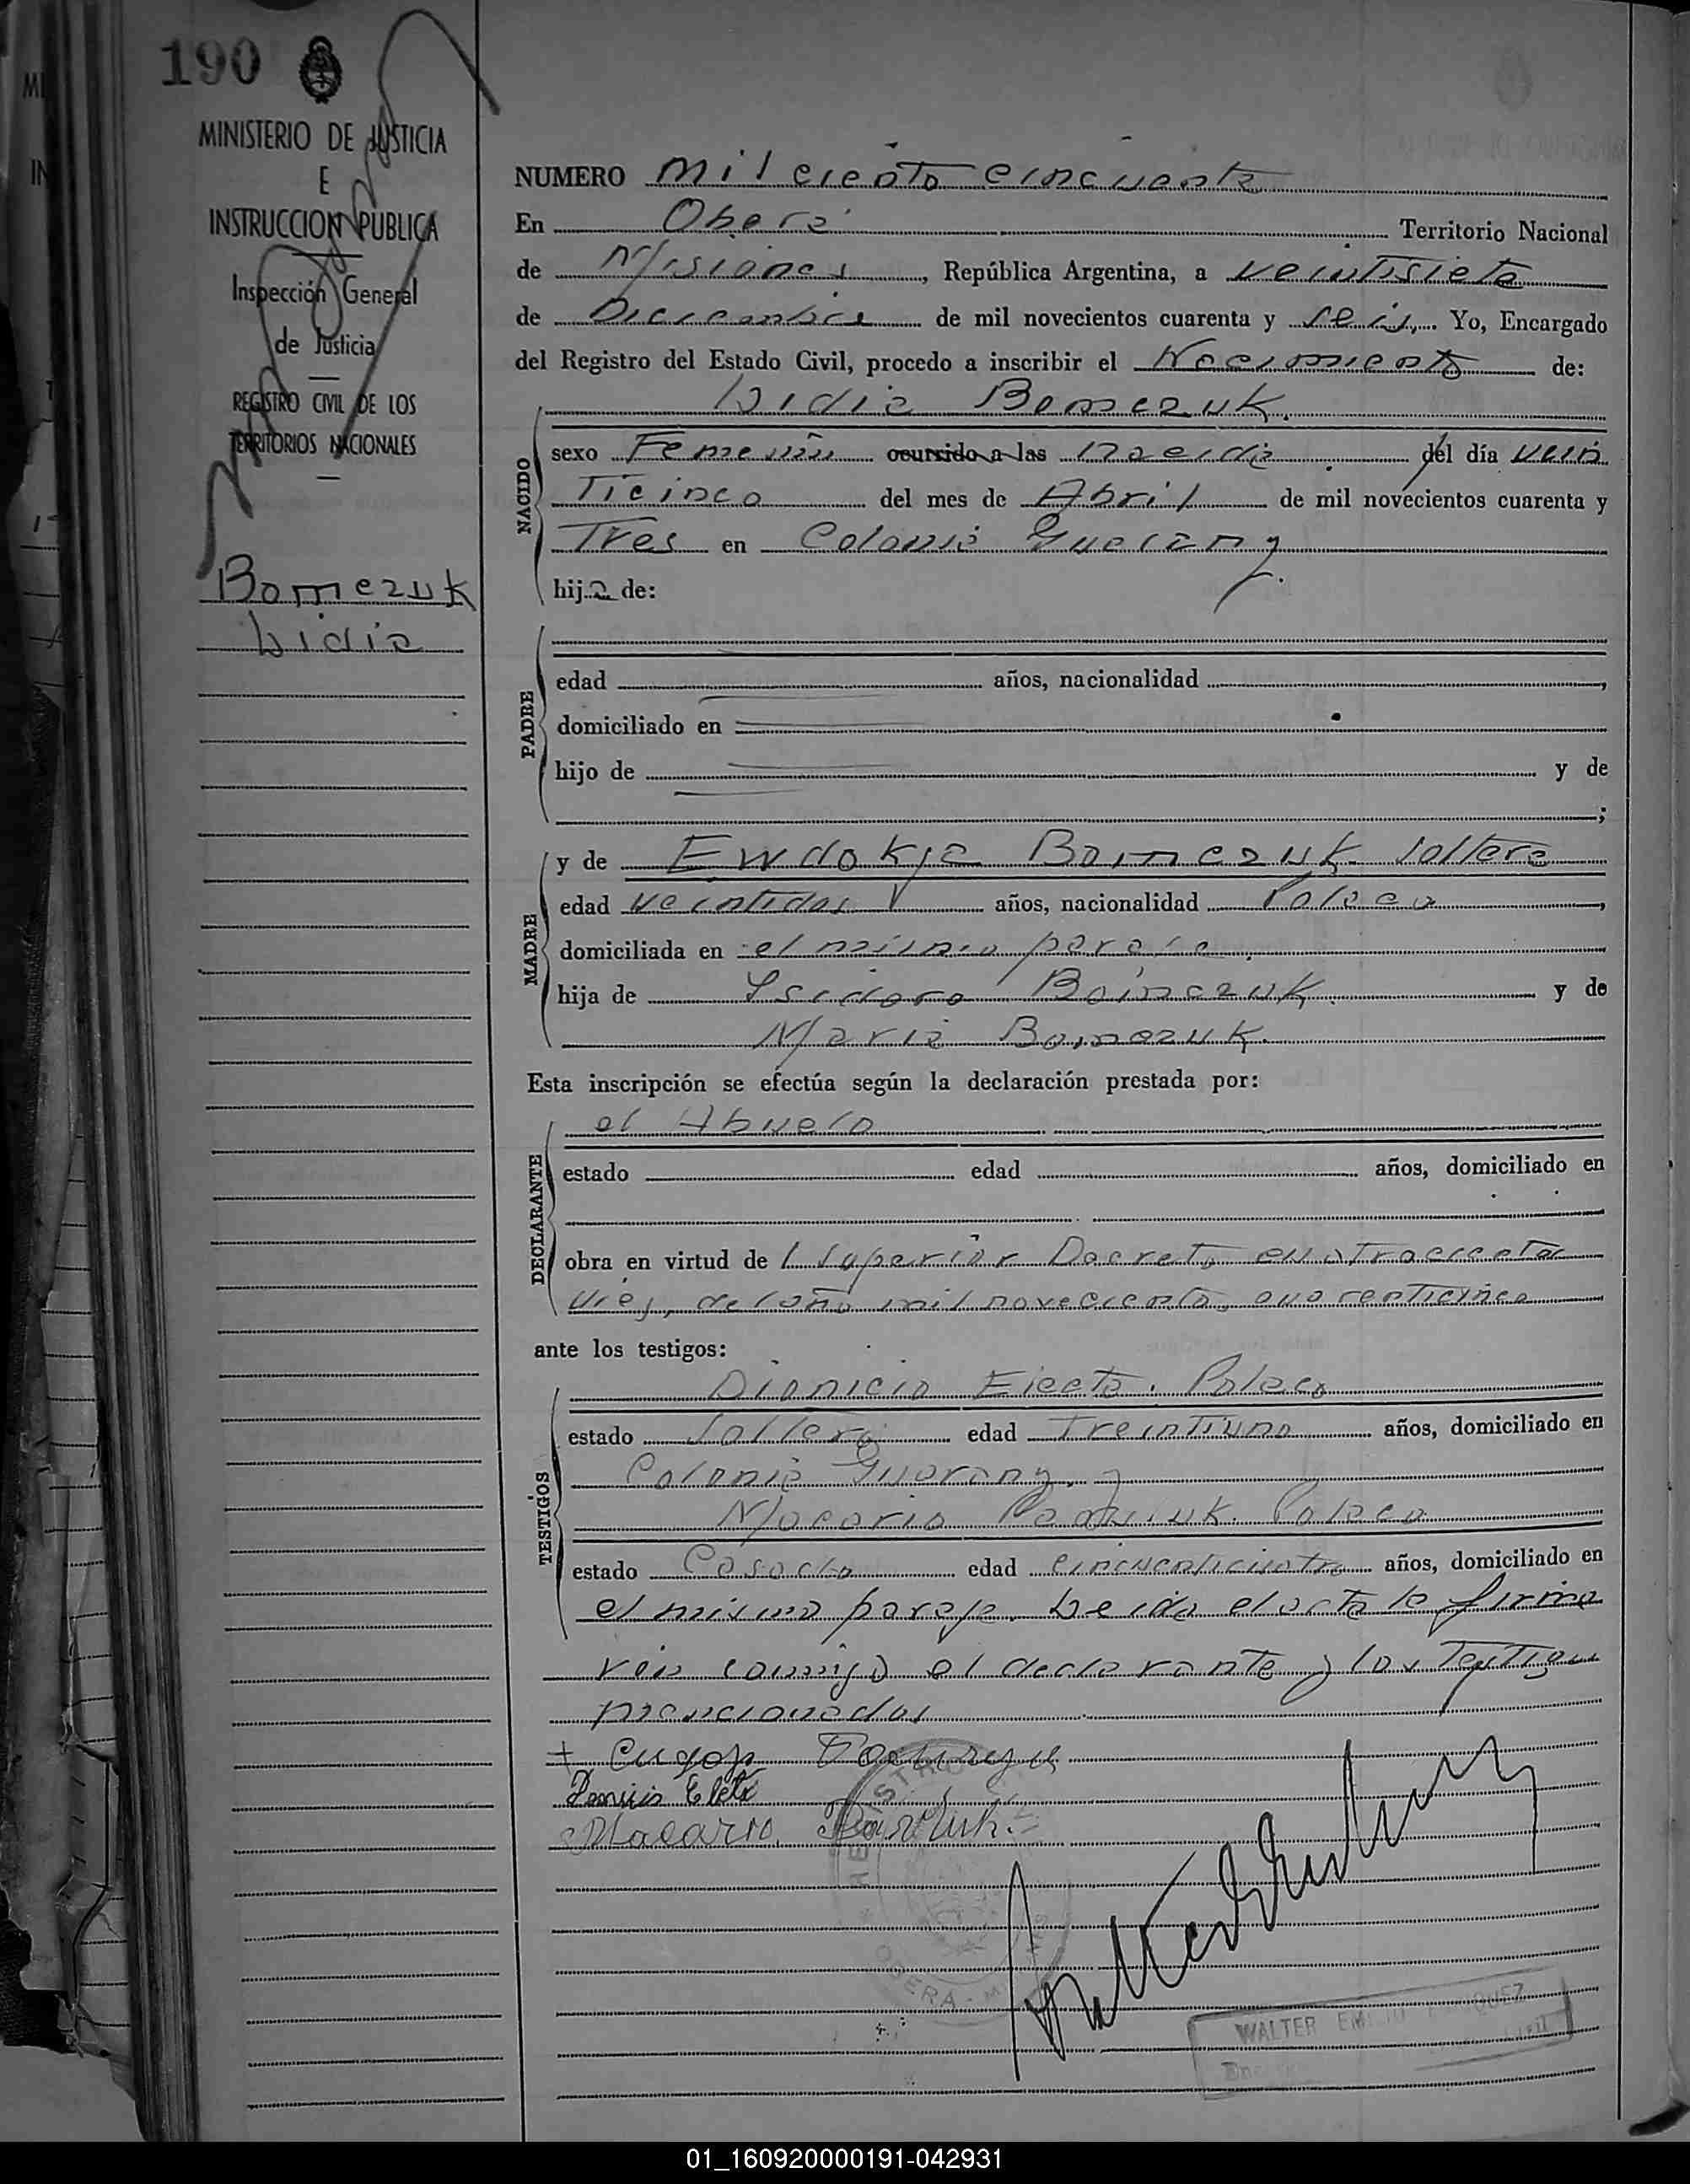 190
MINISTERIO DE JUSTICIA
E
INSTRUCCION PUBLICA
Inspección General
de Justicia
REGISTRO CIVIL DE LOS
TERRITORIOS NACIONALES
Bomczuk
Lidia
NUMERO mil ciento cincuenta
En Oberá Territorio Nacional
de Misiones, República Argentina, a veintisiete
de Diciembre de mil novecientos cuarenta y seis, Yo, Encargado
del Registro del Estado Civil, procedo a inscribir el Nacimiento de:
Lidia Bomczuk.
NACIDO
sexo Femenino ocurrido a las nacida del día vein
ticinco del mes de Abril de mil novecientos cuarenta y
Tres en Colonia Guarany.
hija de:
PADRE
edad años, nacionalidad ,
domiciliado en
hijo de y de
;
MADRE
y de Ewdokja Bomczuk soltera
edad veintidos años, nacionalidad Polaca,
domiciliada en el mismo paraje
hija de Isidoro Boinczuk. y de
Maria Boinczuk.
Esta inscripción se efectúa según la declaración prestada por:
DECLARANTE
el Abuelo
estado edad años, domiciliado en
obra en virtud de l Superior Decreto cuatrocientos
diez, del año mil novecientos cuarenticinco
ante los testigos:
TESTIGOS
Dionicio Polaco
estado Soltero edad Treintiuno años, domiciliado en
Colonia Guarany, y
Macario Polaco
estado Casado edad cincuenticuatro años, domiciliado en
el mismo paraje. Leida el acta la firma
ron conmigo el declarante y los Testigos
mencionados
Macario
OBERA - M
WALTER
01_160920000191-042931